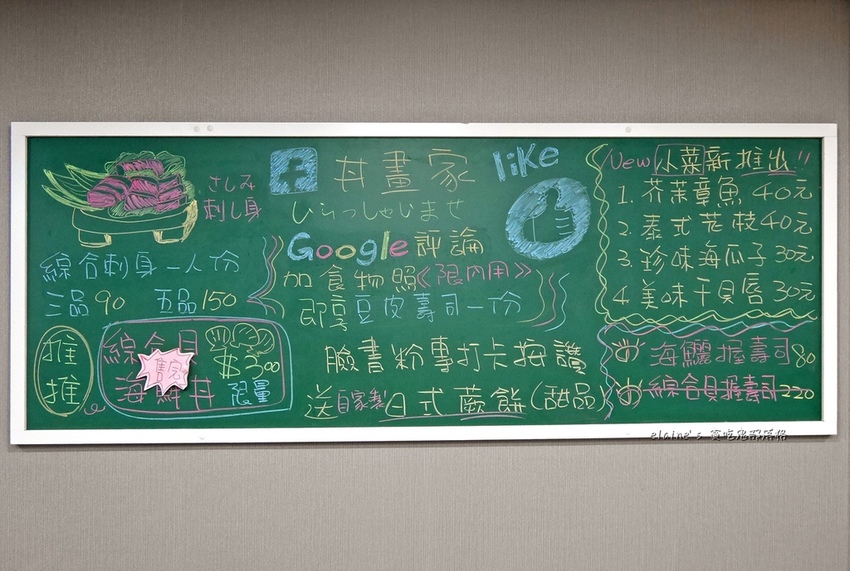 さしみ
刺し身
綜合刺身一人份
三品90 五品150
推
推
綜合貝
海鮮丼
售完
$300
限量
丼畫家
like
いらっしゃいませ
Google評論
加食物照《限內用》
即享豆皮壽司一份
臉書粉專打卡按讚
送自家製日式蕨餅(甜品)
New小菜新推出!!
1.芥茉章魚 40元
2.泰式花枝 40元
3.珍味海瓜子 30元
4.美味干貝唇 30元
海鱺握壽司 80
綜合貝握壽司 220
elaine's 貪吃鬼部落格